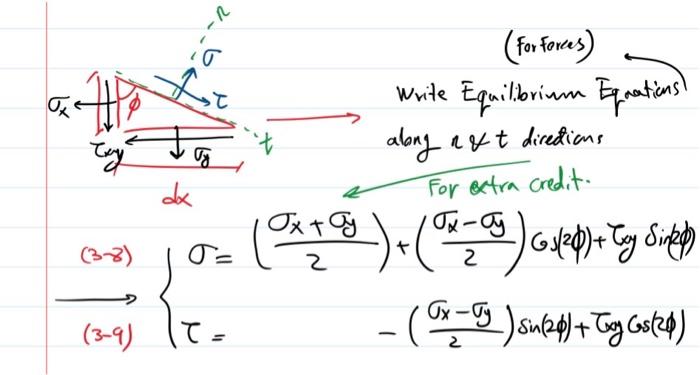 n
σ
τ
σx
ϕ
τxy
σy
t
dx
(For Forces)
Write Equilibrium Equations
along n & t directions
For extra credit.
(3-8)
σ = (σx + σy / 2) + (σx - σy / 2) Cos(2ϕ) + τxy Sin(2ϕ)
(3-9)
τ = - (σx - σy / 2) Sin(2ϕ) + τxy Cos(2ϕ)